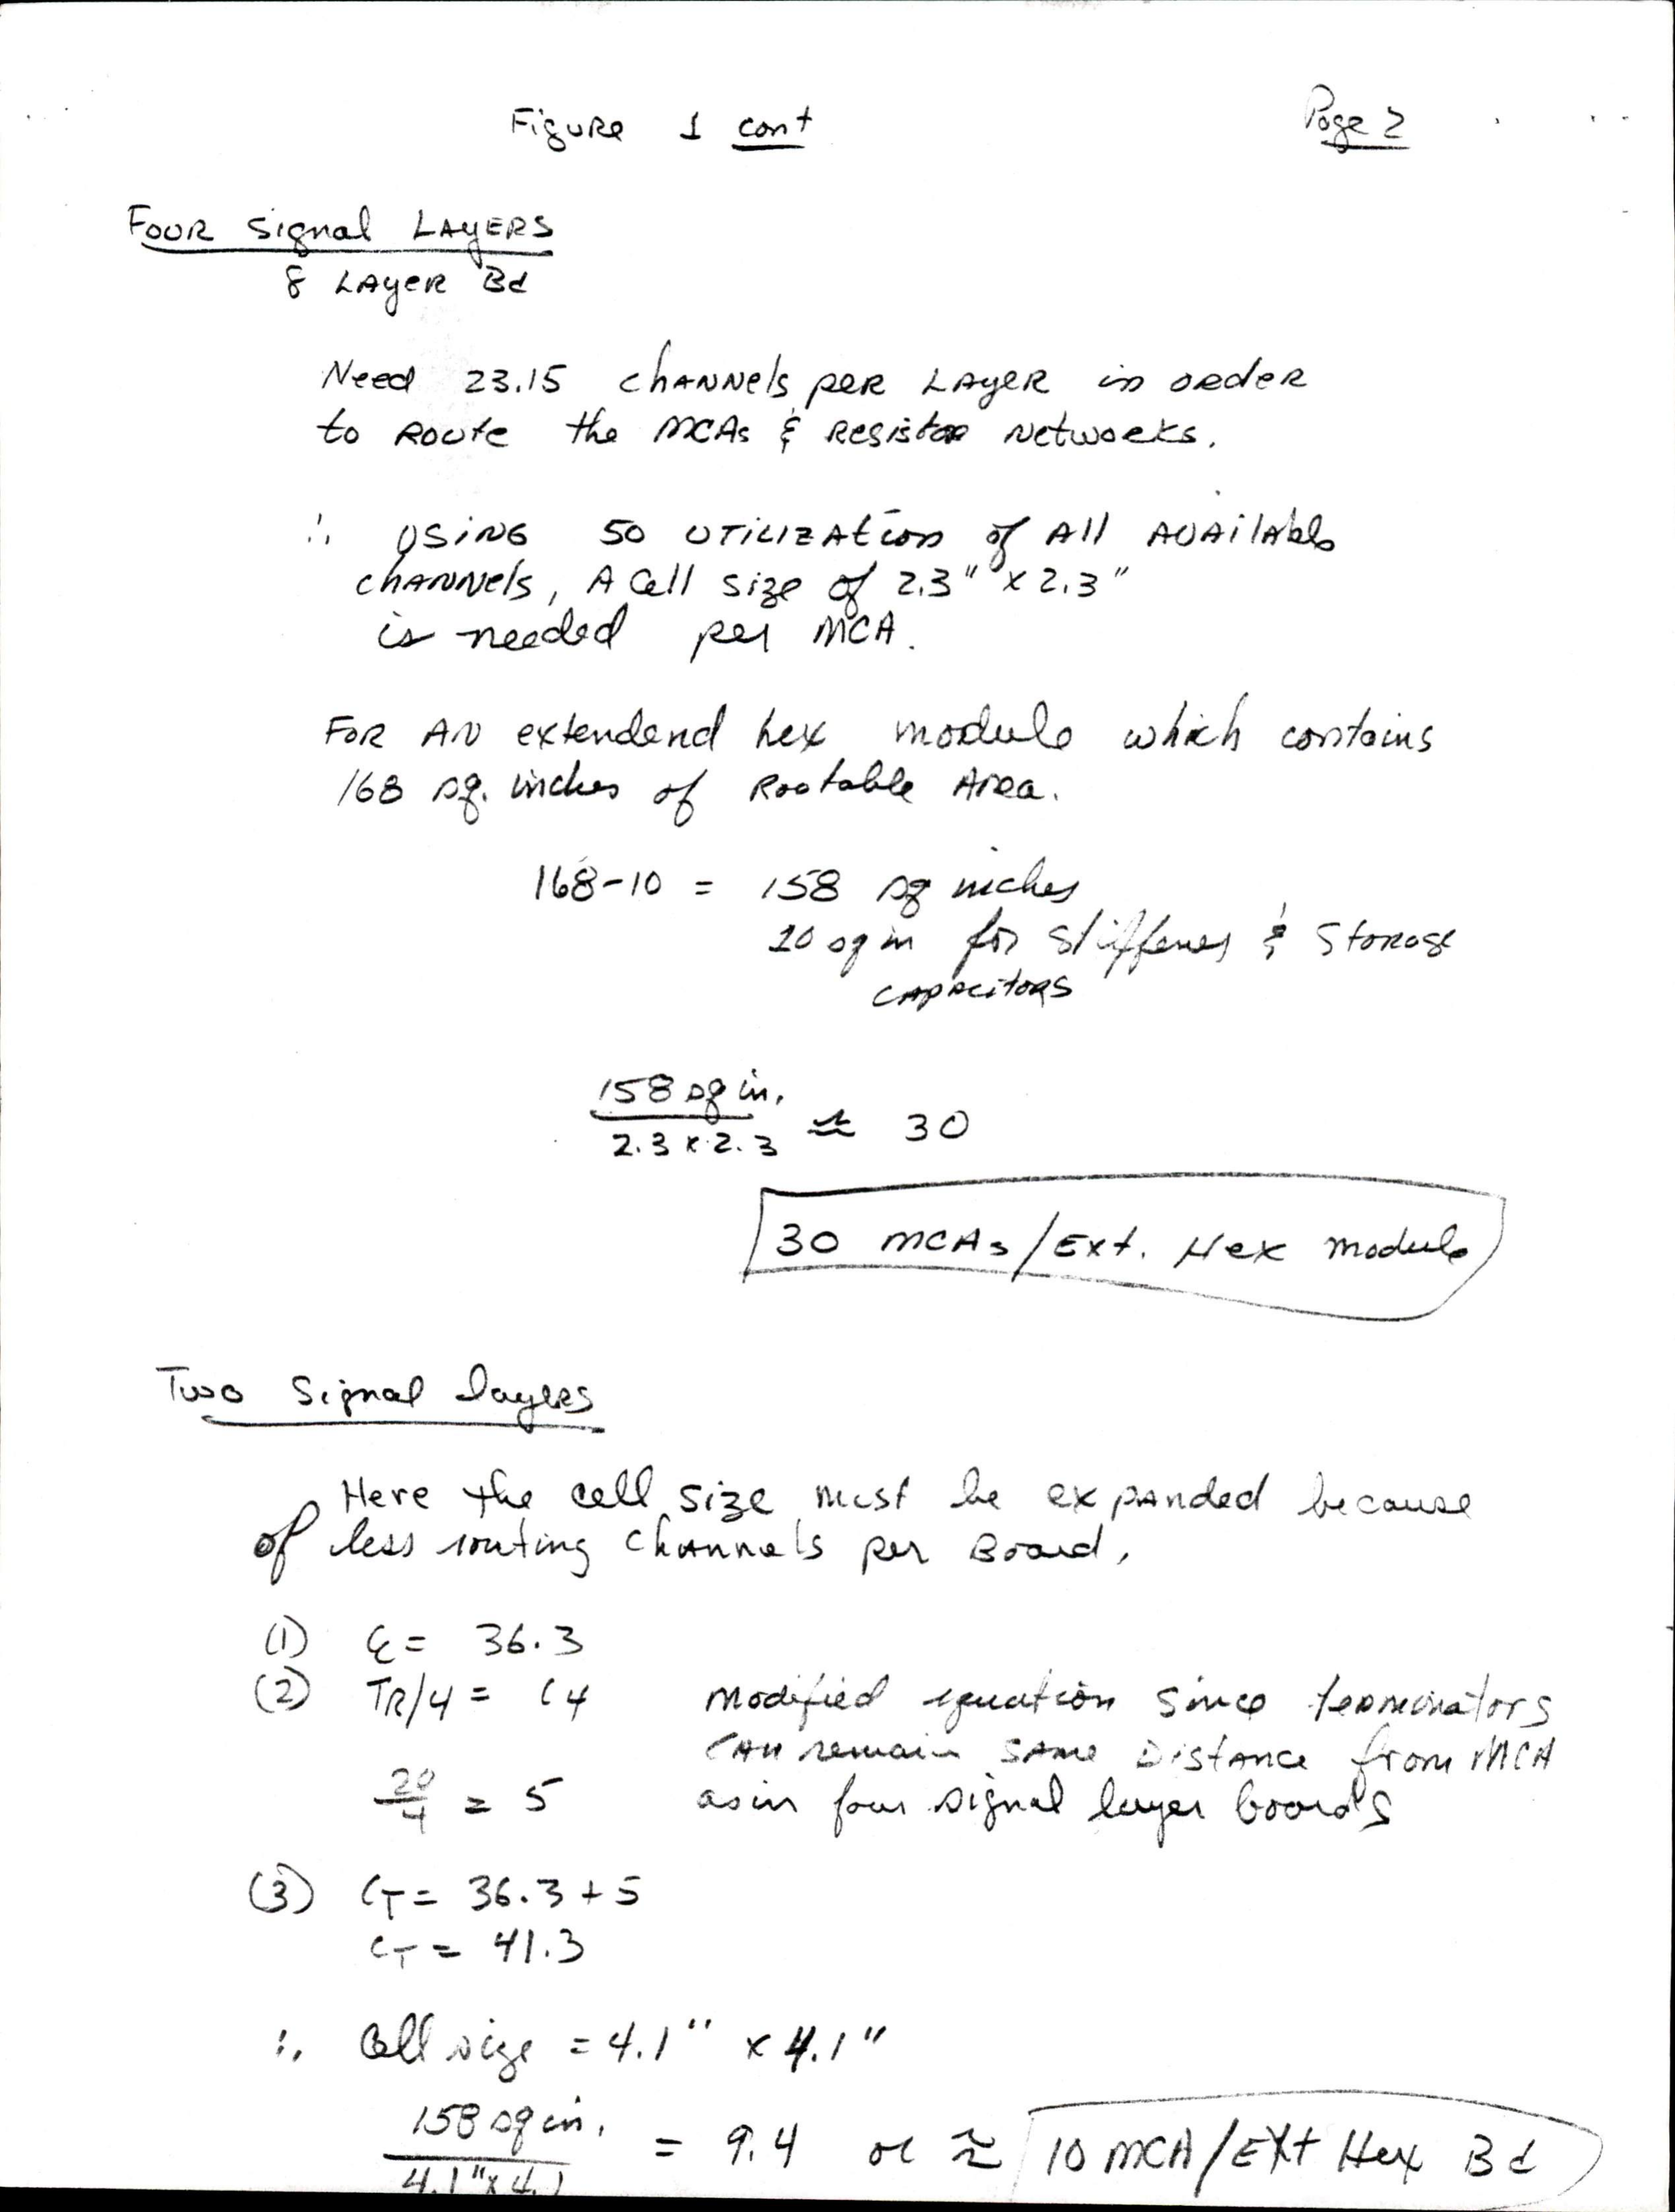 Figure 1 cont
Page 2
Four Signal Layers
8 Layer Bd
Need 23.15 channels per Layer in order
to Route the MCAs & Resistor Networks.
∴ Using 50 Utilization of All Available
channels, A Cell size of 2.3" x 2.3"
is needed per MCA.
For AN extendend hex module which contains
168 sq. inches of Rootable Area.
168-10 = 158 sq inches
10 sq in for stiffener & Storage
capacitors
158 sq in.
2.3 x 2.3 ≈ 30
30 MCAs/Ext. Hex module
Two Signal layers
Here the cell size must be expanded because
of less routing channels per Board,
(1) = 36.3
(2) TR/4 = C4 modified equation since terminators
can remain same Distance from MCA
20/4 = 5 as in four signal layer boards
(3) CT = 36.3 + 5
CT = 41.3
∴ Cell size = 4.1" x 4.1"
158 sq in.
4.1" x 4.1 = 9.4 or ≈ 10 MCA/Ext Hex Bd